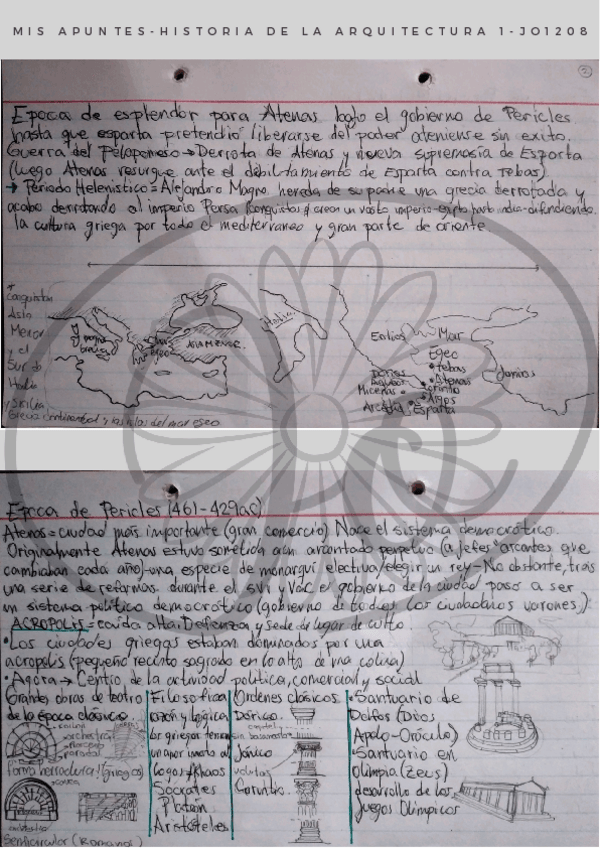 MIS APUNTES-HISTORIA DE LA ARQUITECTURA 1-JO1208
2
Epoca de esplendor para Atenas bajo el gobierno de Pericles
hasta que esparta pretendió liberarse del poder ateniense sin exito.
Guerra del Peloponeso → Derrota de Atenas y nueva supremasía de Esparta
(luego Atenas resurge ante el debilitamiento de Esparta contra Tebas)
→ Periodo Helenistico = Alejandro Magno hereda de su padre una grecia derrotada y
acaba derrotando al imperio Persa (conquistas) crean un vasto imperio-egipto hasta india-difundiendo
la cultura griega por todo el mediterraneo y gran parte de oriente.
* Conquistan
Asia
Menor
y el
Sur de
Italia
y Sicilia
magna
grecia
mar
egeo
ASIA MENOR.
Italia
Eolios
Mar
Egeo
Tebas
Dorios
Aqueos
Atenas
Jonios
Micenas
Corinto
Argos
Arcadia
Esparta
Grecia continental y las islas del mar egeo
Epoca de Pericles (461-429ac)
Atenas = ciudad más importante (gran comercio) Nace el sistema democrático.
Originalmente Atenas estuvo sometida a un arcontado perpetuo (a Jefes "arcantes" que
cambiaban cada año)-una especie de monarquí electiva/elegir un rey-No obstante, trais
una serie de reformas durante el sVI y VaC el gobierno de la ciudad paso a ser
un sistema político democrático (gobierno de todos los ciudadanos varones)
ACROPOLIS = ciudad alta: Defenza y sede de lugar de culto.
• Las ciudades griegas estaban dominadas por una
acropolis (pequeño recinto sagrado en lo alto de una colina)
• Agora → Centro de la actividad política, comercial y social
Grandes obras de teatro
de la época clásica.
orchestra
forma herradura! (griegos)
Semicircular (Romanos)
Filosofías
razón y lógica
los griegos tenean
un amor innato al
Logos/Khaos
Sócrates
Platón
Aristóteles
Ordenes clásicos
Dórico.
capitel
sin basamento
Jónico
volutas
Corintio.
• Santuario de
Delfos (Dios
Apolo-Oráculo)
• Santuario en
olimpia (Zeus)
desarrollo de los
Juegos Olimpicos